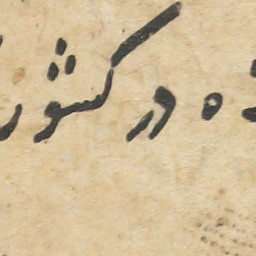 ه در کشور